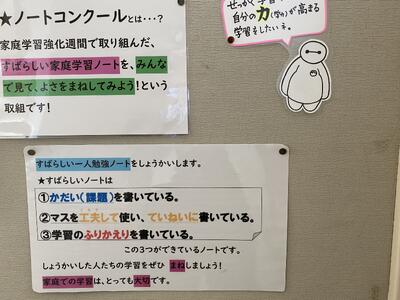 ★ノートコンクールとは・・・?
家庭学習強化週間で取り組んだ、
すばらしい家庭学習ノートを、みんな
で見て、よさをまねしてみよう!という
取組です!
自分の力(学力)が高まる
学習をしたいネ。
すばらしい一人勉強ノートをしょうかいします。
★すばらしいノートは
①かだい(課題)を書いている。
②マスを工夫して使い、ていねいに書いている。
③学習のふりかえりを書いている。
この3つができているノートです。
しょうかいした人たちの学習をぜひ まねしましょう!
家庭での学習は、とっても大切です。